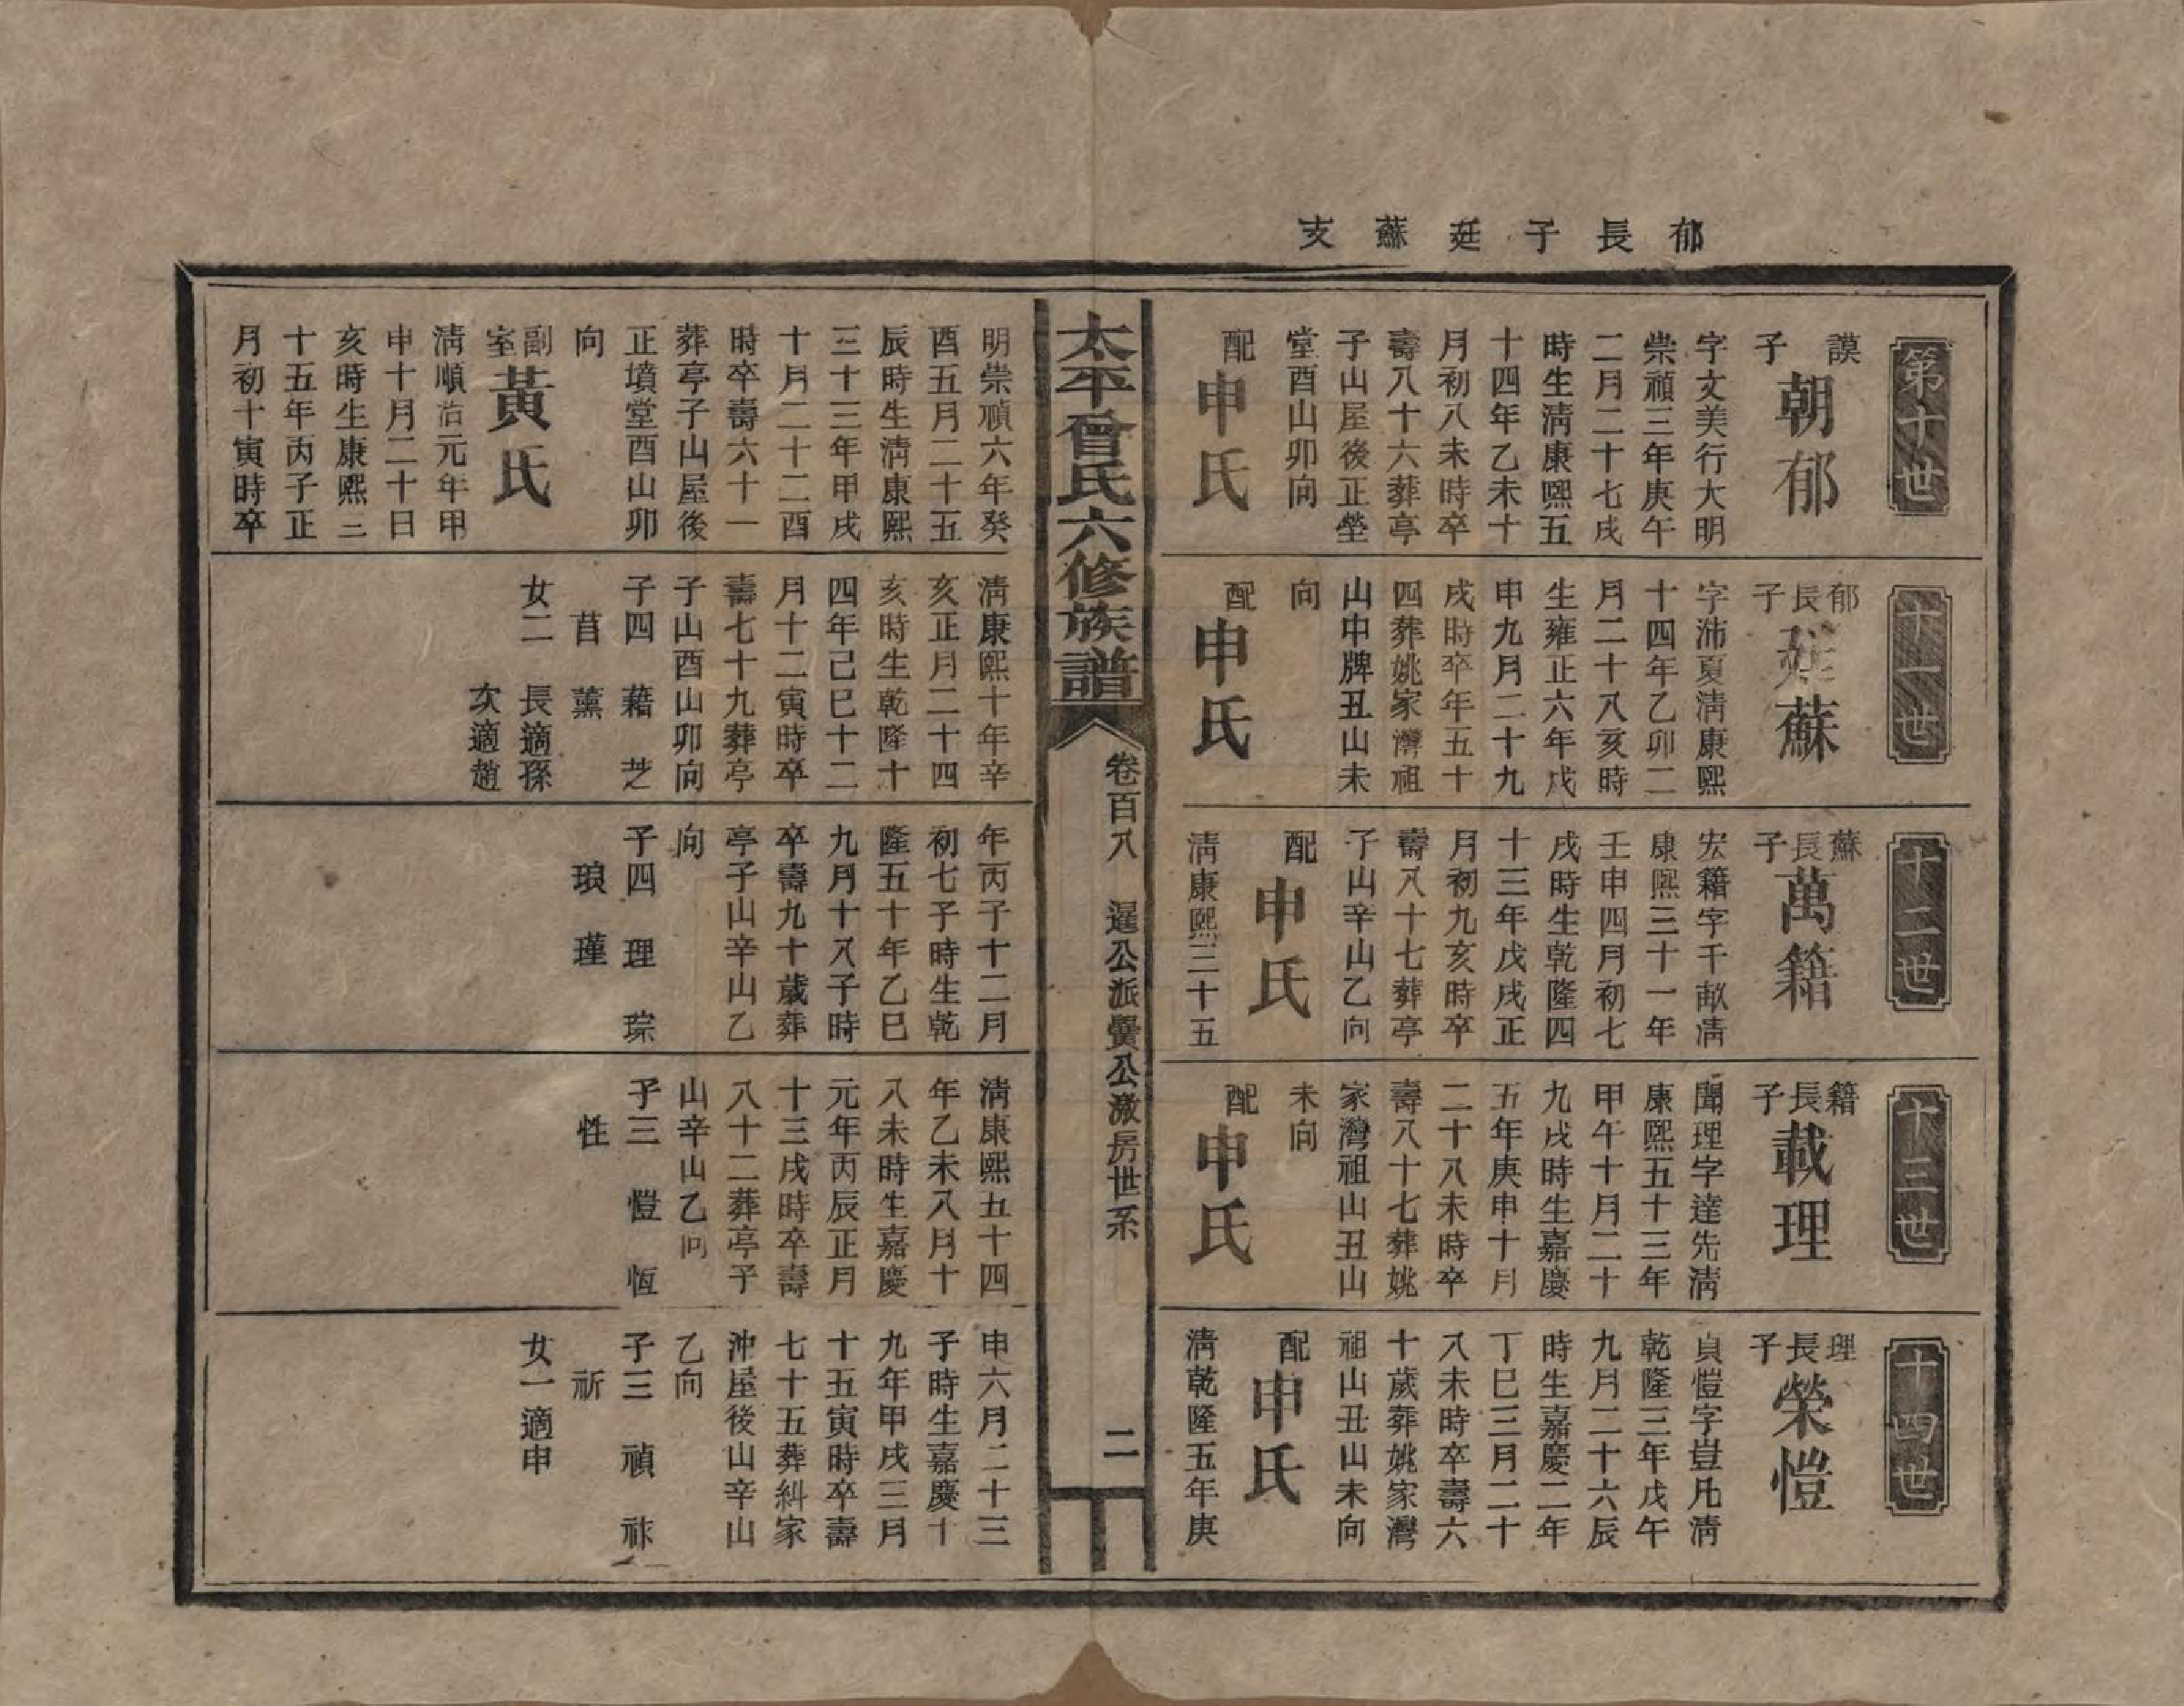 郁長子廷蘇支
第十世
謨子朝郁
字文美行大明
崇禎三年庚午
二月二十七戌
時生淸康熙五
十四年乙未十
月初八未時卒
壽八十六葬亭
子山屋後正塋
堂酉山卯向
配申氏
明崇禎六年癸
酉五月二十五
辰時生淸康熙
三十三年甲戌
十月二十二酉
時卒壽六十一
葬亭子山屋後
正墳堂酉山卯
向
副室黃氏
淸順治元年甲
申十月二十日
亥時生康熙三
十五年丙子正
月初十寅時卒
十一世
郁長子廷蘇
字沛夏淸康熙
十四年乙卯二
月二十八亥時
生雍正六年戊
申九月二十九
戌時卒年五十
四葬姚家灣祖
山中牌丑山未
向
配申氏
淸康熙十年辛
亥正月二十四
亥時生乾隆十
四年己巳十二
月十二寅時卒
壽七十九葬亭
子山酉山卯向
子四 藉 芝
萺 薰
女二 長適孫
次適趙
十二世
蘇長子萬籍
宏籍字千畝淸
康熙三十一年
壬申四月初七
戌時生乾隆四
十三年戊戌正
月初九亥時卒
壽八十七葬亭
子山辛山乙向
配申氏
淸康熙三十五
年丙子十二月
初七子時生乾
隆五十年乙巳
九月十八子時
卒壽九十歲葬
亭子山辛山乙
向
子四 理 琮
琅 瑾
十三世
籍長子載理
聞理字達先淸
康熙五十三年
甲午十月二十
九戌時生嘉慶
五年庚申十月
二十八未時卒
壽八十七葬姚
家灣祖山丑山
未向
配申氏
淸康熙五十四
年乙未八月十
八未時生嘉慶
元年丙辰正月
十三戌時卒壽
八十二葬亭子
山辛山乙向
子三 愷 恆
性
十四世
理長子榮愷
貞愷字豈凡淸
乾隆三年戊午
九月二十六辰
時生嘉慶二年
丁巳三月二十
八未時卒壽六
十歲葬姚家灣
祖山丑山未向
配申氏
淸乾隆五年庚
申六月二十三
子時生嘉慶十
九年甲戌三月
十五寅時卒壽
七十五葬糾家
沖屋後山辛山
乙向
子三 禎 祩
祈
女一適申
太平曾氏六修族譜
卷百八 暹公派釁公激房世系
二